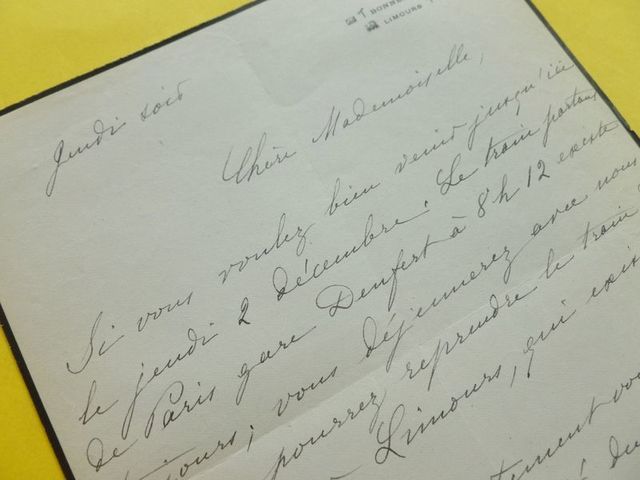 BONNE
LIMOURS
Jeudi soir
Chère Mademoiselle,
Si vous voulez bien venir jusqu'ici
le jeudi 2 décembre. Le train partant
de Paris gare Denfert à 8h 12 existe
toujours; vous déjeunerez avec nous
pourrez reprendre le train
Limours, qui exis